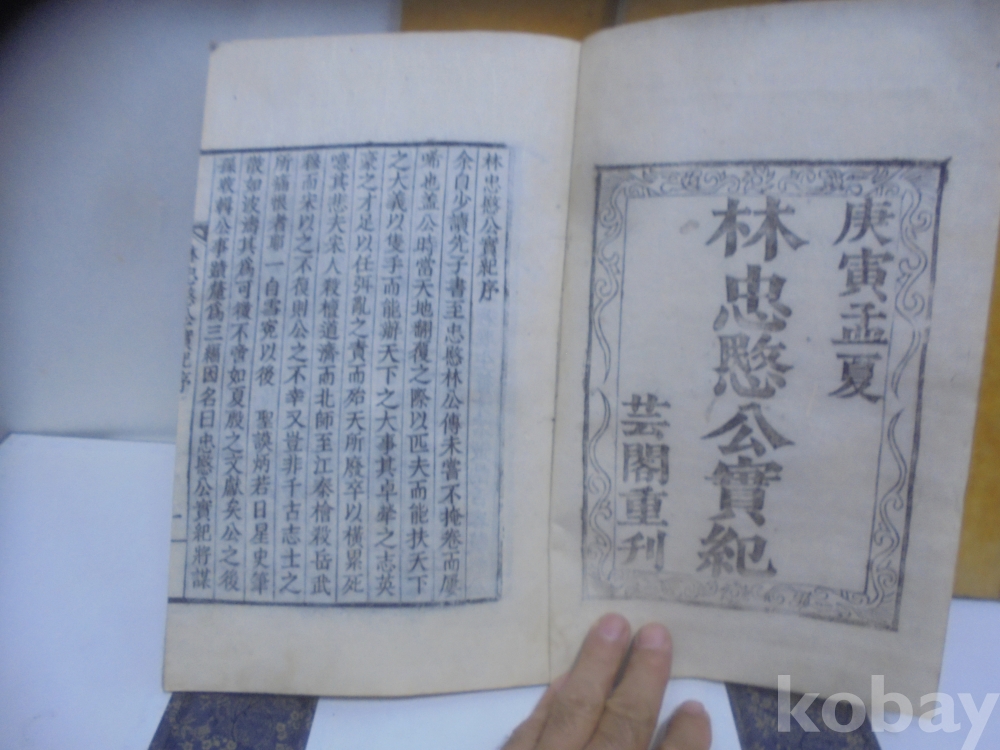 庚寅孟夏
林忠愍公實紀
芸閣重刊
林忠愍公實紀序
余自少讀先子書至忠愍林公傳未嘗不掩卷而屢
唏也盖公時當天地翻覆之際以匹夫而能扶天下
之大義以隻手而能辦天下之大事其卓犖之志英
豪之才足以任弭亂之責而殆天所廢卒以橫累死
噫其悲夫宋人殺檀道濟而北師至江秦檜殺岳武
穆而宋以之不復則公之不幸又豈非千古志士之
所痛恨者耶一自雪寃以後 聖謨炳若日星史筆
散如波濤其爲可徵不啻如夏殷之文獻矣公之後
孫敢輯公事蹟釐爲三編因名曰忠愍公實紀將謀
林忠愍公實紀序
一
kobay